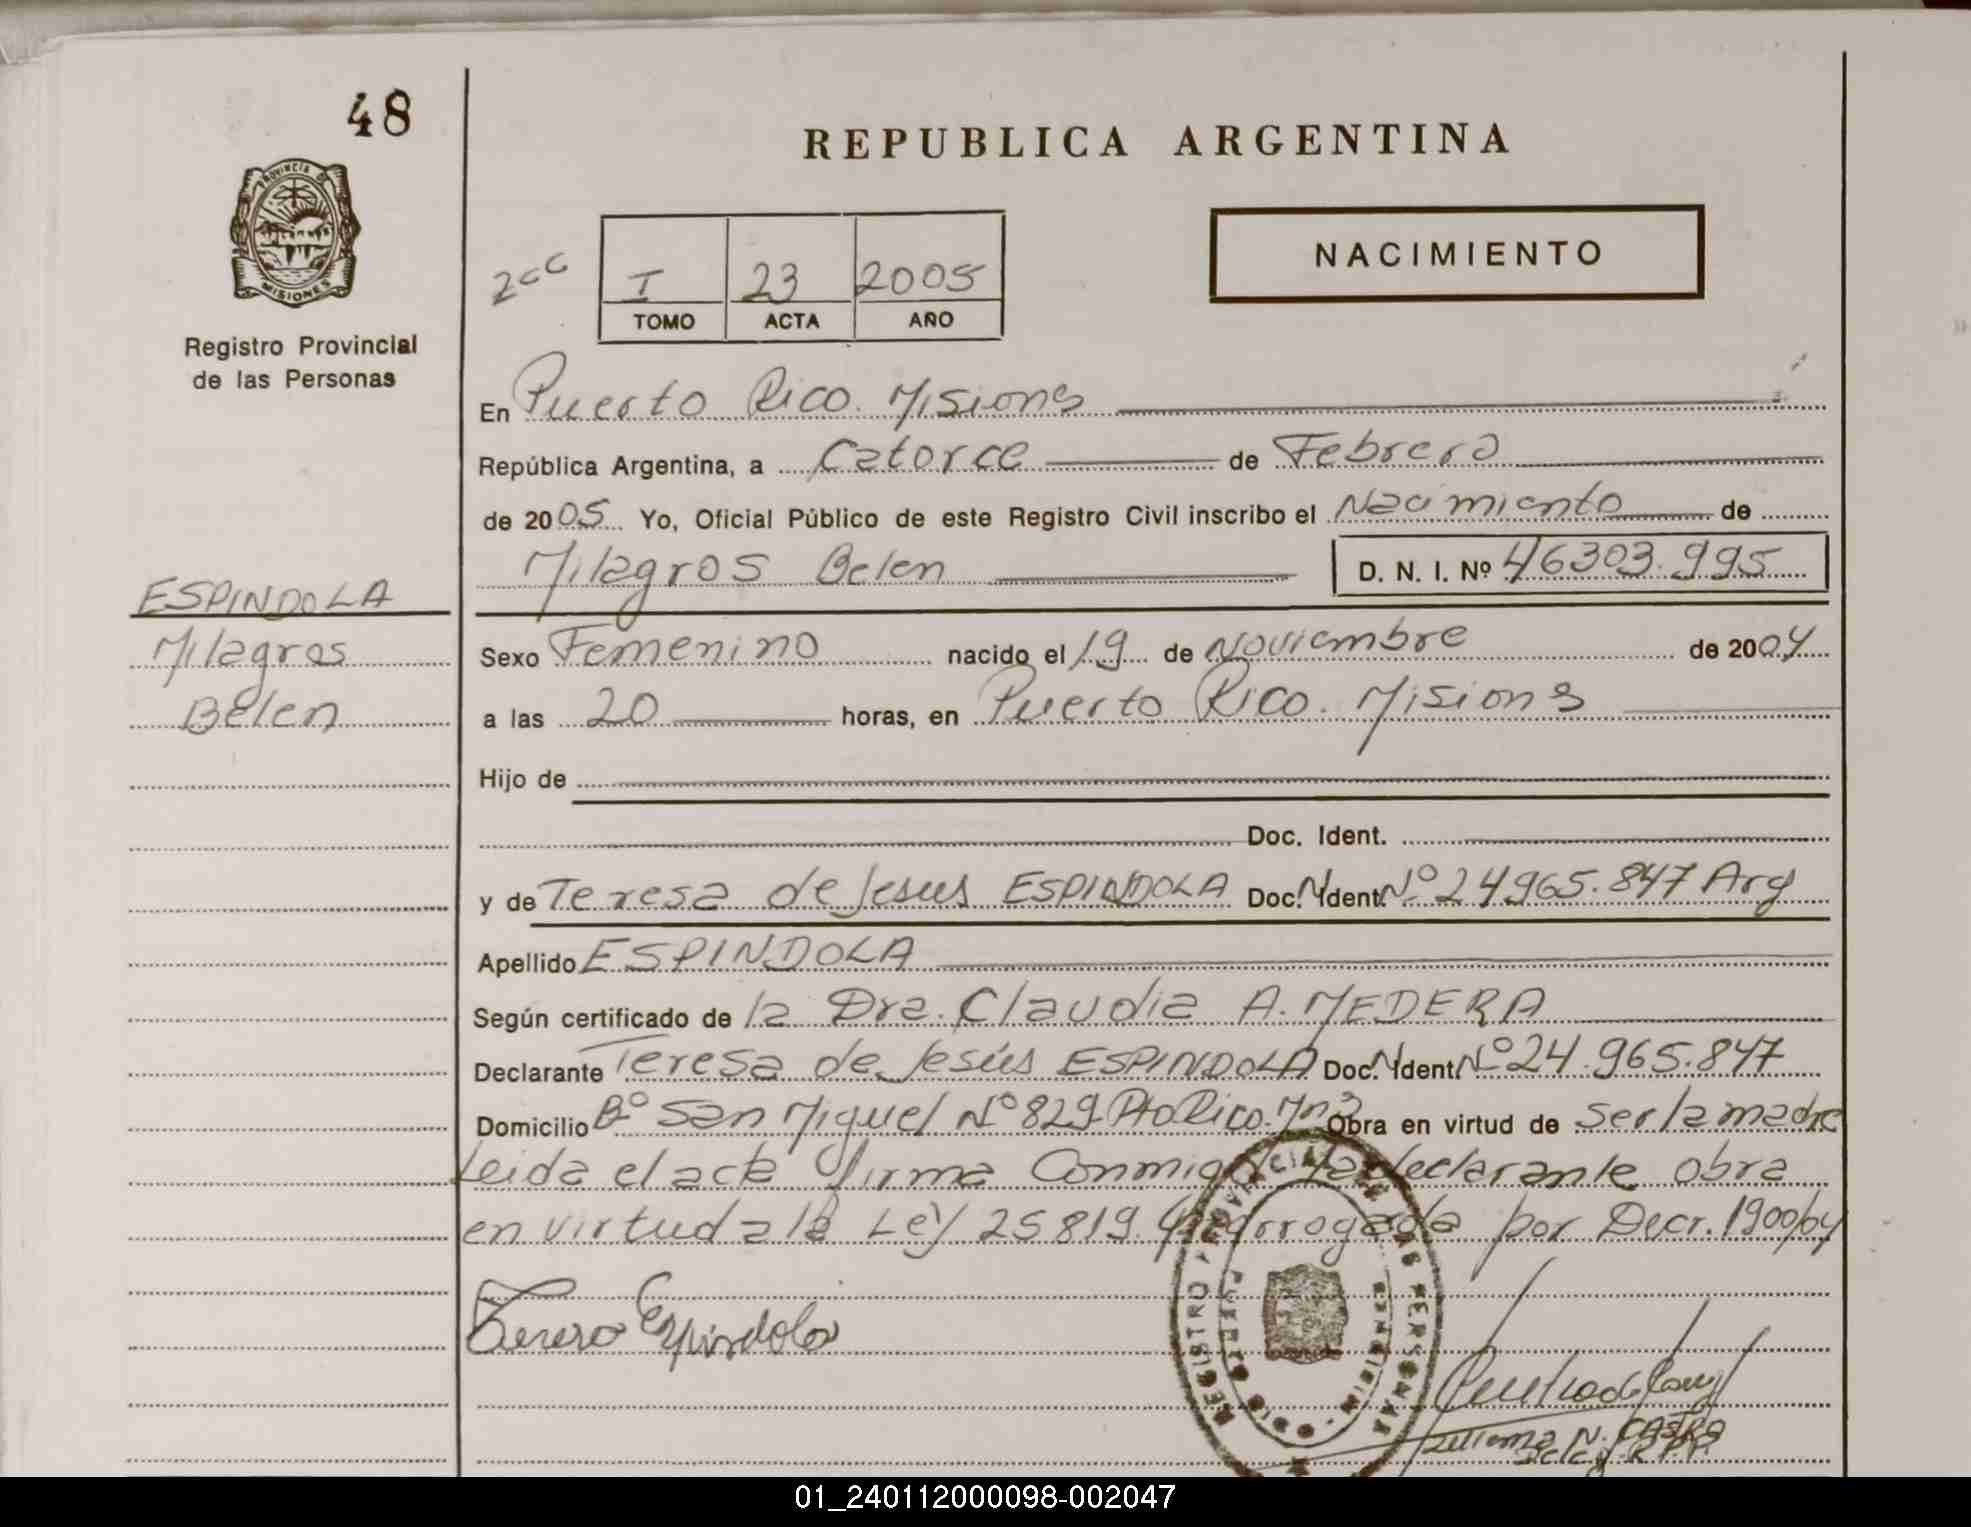 48
REPUBLICA ARGENTINA
PROVINCIA DE
MISIONES
Registro Provincial
de las Personas
2cc
I 23 2005
TOMO ACTA AÑO
NACIMIENTO
En Puerto Rico. Misiones
República Argentina, a Catorce de Febrero
de 2005 Yo, Oficial Público de este Registro Civil inscribo el Nacimiento de
Milagros Belen D. N. I. Nº 46303.995
ESPINDOLA
Milagros
Belen
Sexo Femenino nacido el 19 de Noviembre de 2004
a las 20 horas, en Puerto Rico. Misiones
Hijo de
Doc. Ident.
y de Teresa de Jesus ESPINDOLA Doc. Ident Nº 24965.847 Arg
Apellido ESPINDOLA
Según certificado de la Dra. Claudia A. MEDERA
Declarante Teresa de Jesús ESPINDOLA Doc. Ident Nº 24.965.847
Domicilio Bº San Miguel Nº 829 Pto Rico. Mnes Obra en virtud de ser la madre
Leida el acta firma Conmigo la declarante obra
en virtud a la Ley 25819. prorrogada por Decr. 1900/04
Teresa Espindola
REGISTRO PROVINCIAL DE LAS PERSONAS
PUERTO RICO
N. CASTRO
01_240112000098-002047